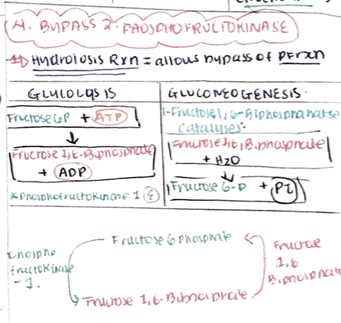 4. BYPASS 2: PHOSPHOFRUCTOKINASE
Hydrolosis Rxn = allows bypass of PFK rxn
GLYCOLYSIS
GLUCONEOGENESIS
Fructose 6P + ATP
Fructose 1,6-Bisphosphate
+ ADP
*phosphofructokinase 1
1-Fructose 1,6-Biphosphatase
catalyses.
Fructose 1,6, Biphosphate
+ H2O
Fructose 6-P + Pi
Fructose 6 phosphate
phospho
fructokinase
-1.
Fructose
1,6
Biphosphate
Fructose 1,6-Bisphosphate.